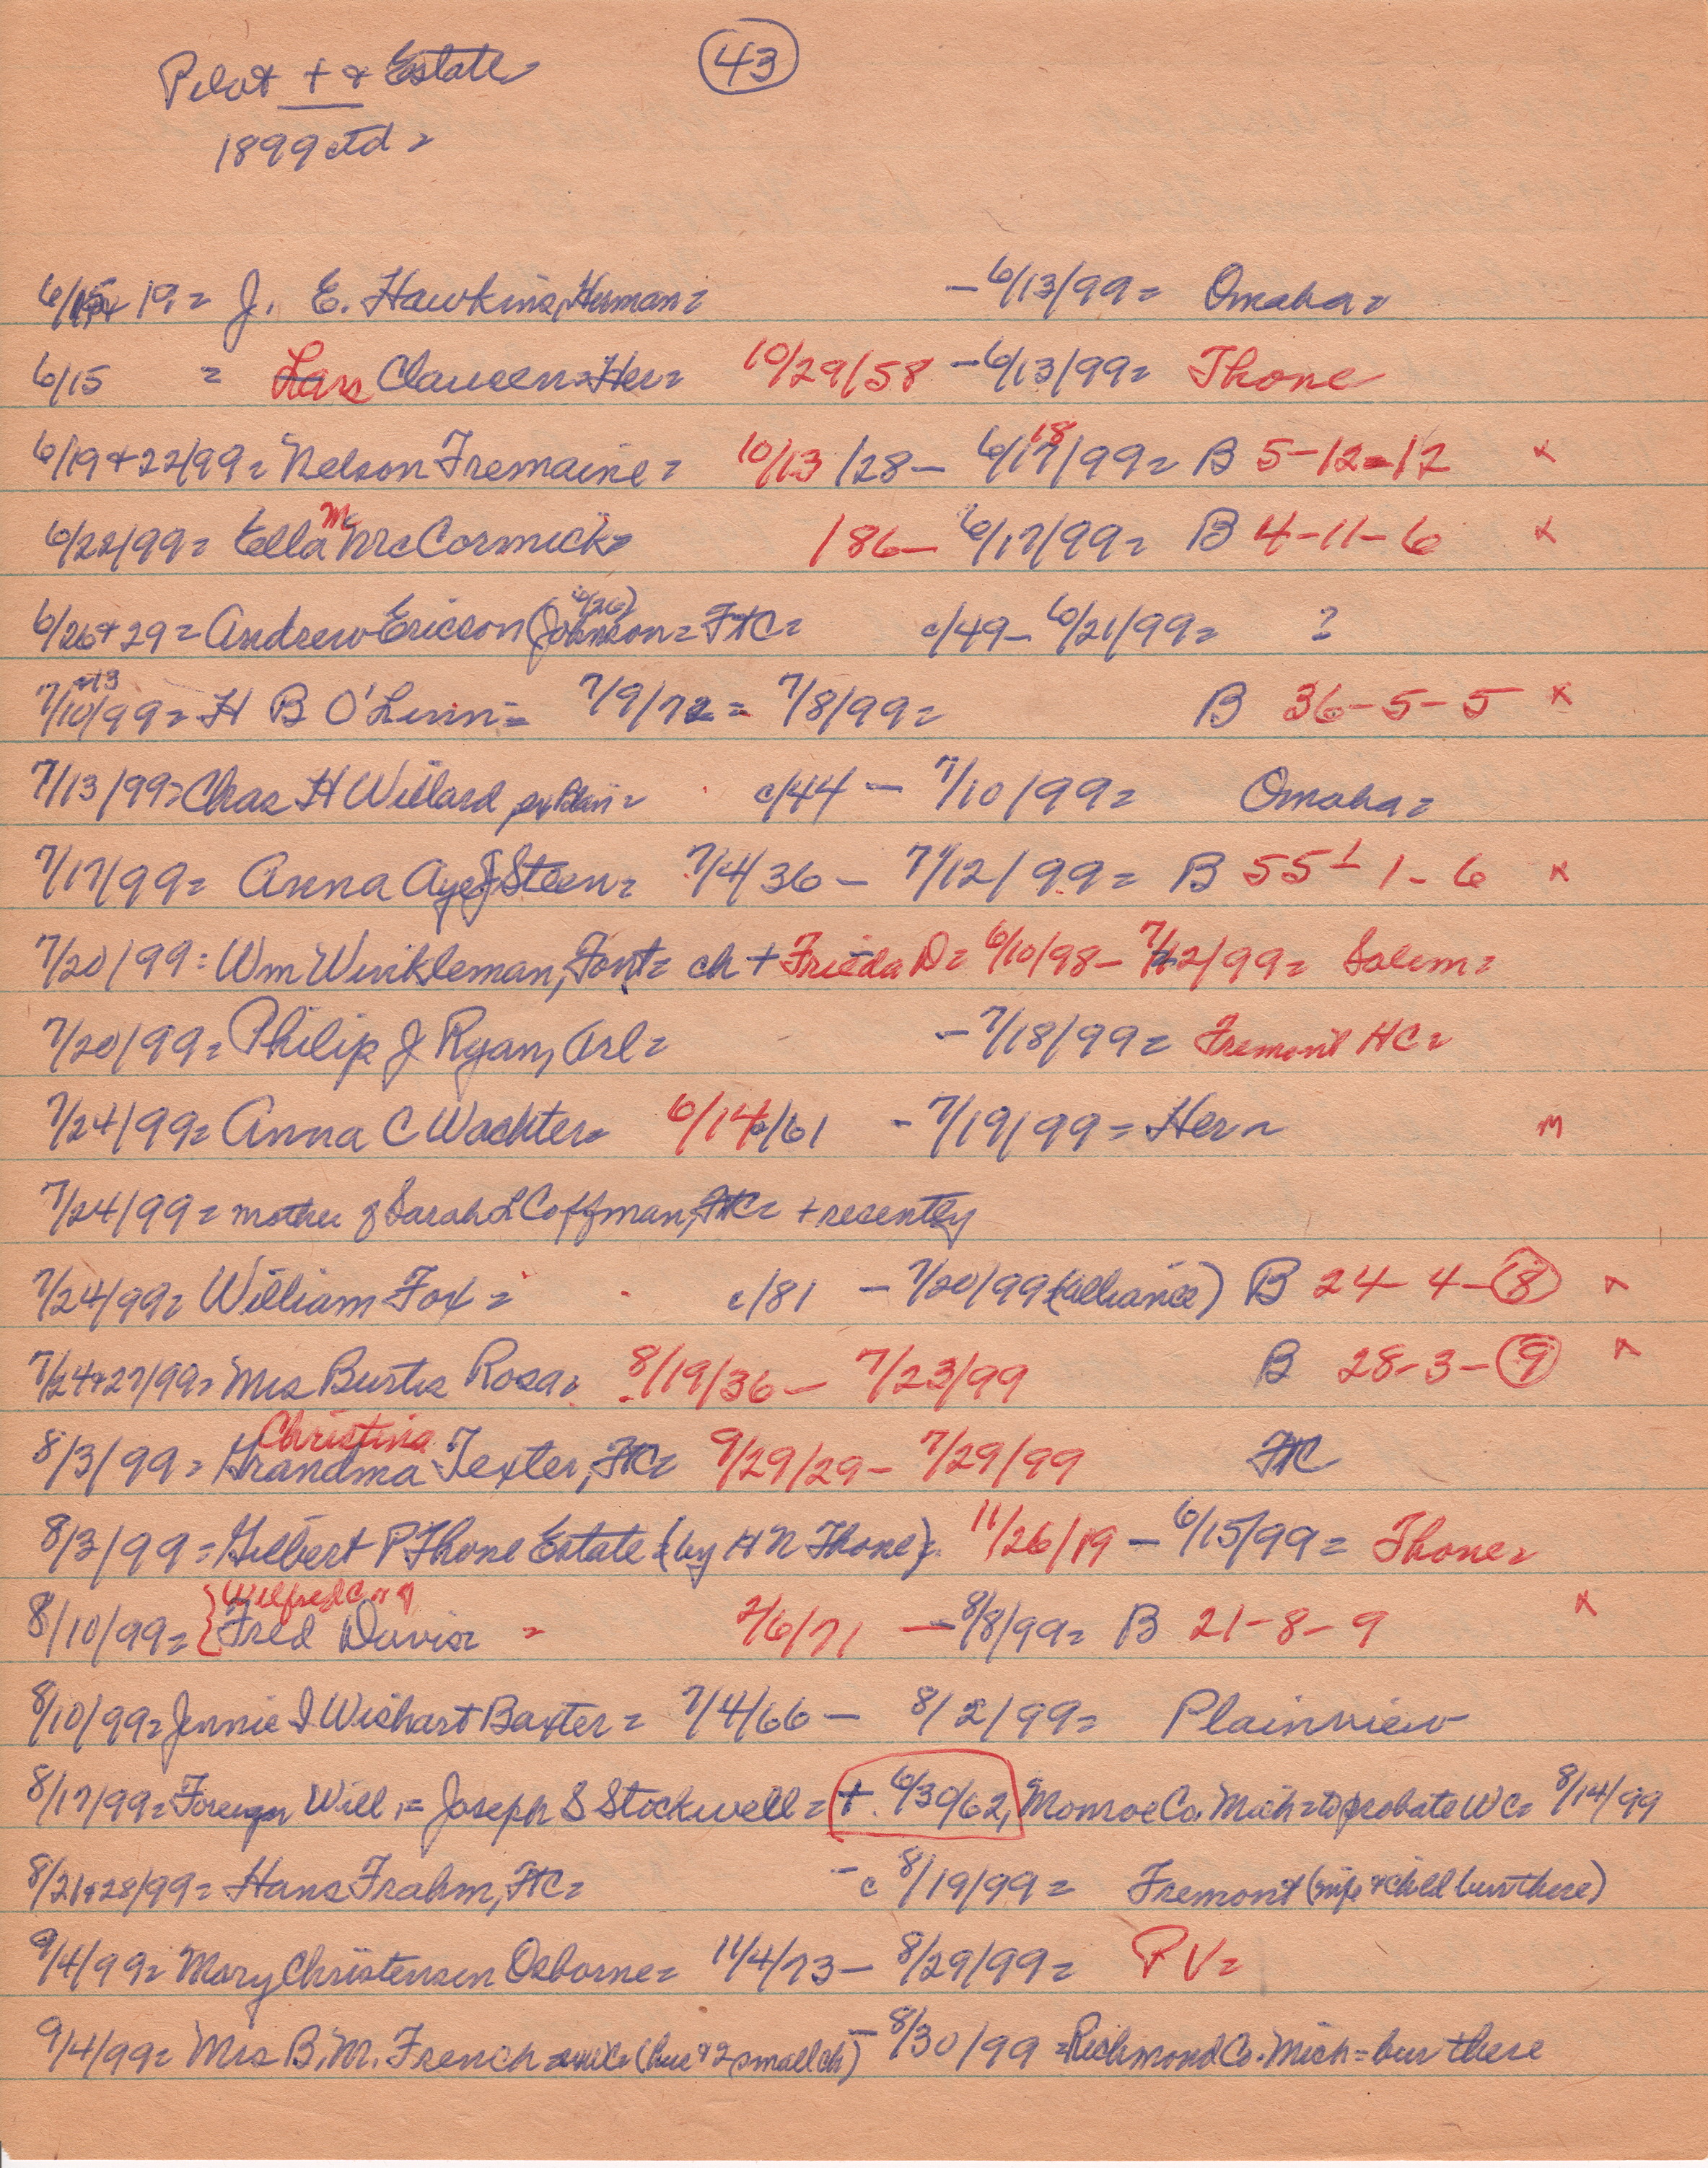 Pilot + & Estate (43)
1899 ctd =
6/15 & 19 = J. E. Hawkins, Herman = - 6/13/99 = Omaha =
6/15 = Lars Clausen = Her = 10/29/58 - 6/13/99 = Thone
18
6/19 & 22/99 = Nelson Tremaine = 10/13/28 - 6/17/99 = B 5-12-12 x
M
6/22/99 = Ella McCormick = 186- 6/17/99 = B 4-11-6 x
6/26)
6/26 & 29 = Andrew Ericson (Johnson = FtC = c/49 - 6/21/99 = ?
+13
7/10/99 = H B O'Linn = 7/9/72 = 7/8/99 = B 36-5-5 x
7/13/99 = Chas H Willard, ex Blair = c/44 - 7/10/99 = Omaha =
7/17/99 = Anna Aye J Steen = 7/4/36 - 7/12/99 = B 55-1-6 x
7/20/99 = Wm Winkleman, Font = ch + Frieda D = 6/10/98 - 7/12/99 = Salem =
7/20/99 = Philip J Ryan, Arl = - 7/18/99 = Fremont HC =
7/24/99 = Anna C Wachter = 6/14/61 - 7/19/99 = Her = M
7/24/99 = mother of Sarah L Coffman, FtC = + recently
7/24/99 = William Fox = c/81 - 7/20/99 (Alliance) B 24-4-(8) x
7/24 & 27/99 = Mrs Burtis Rosa = 8/19/36 - 7/23/99 B 28-3-(9) x
Christina
8/3/99 = Grandma Texter, FtC = 9/29/29 - 7/29/99 FtC
8/3/99 = Gilbert P Thone Estate (by H N Thone) = 11/26/19 - 6/15/99 = Thone =
Wilfred C
8/10/99 = {Fred Davis = 2/6/71 - 8/8/99 = B 21-8-9 x
8/10/99 = Jennie I Wishart Baxter = 7/4/66 - 8/2/99 = Plainview
8/17/99 = Foreign Will, = Joseph S Stockwell = +. 6/30/62, Monroe Co. Mich = to probate WC = 8/14/99
8/21 & 28/99 = Hans Frahm, FtC = - c 8/19/99 = Fremont (wife & child bur there)
9/4/99 = Mary Christensen Osborne = 11/4/73 - 8/29/99 = PV =
9/4/99 = Mrs B. M. French = (hus & 2 small ch) - 8/30/99 = Richmond Co. Mich = bur there